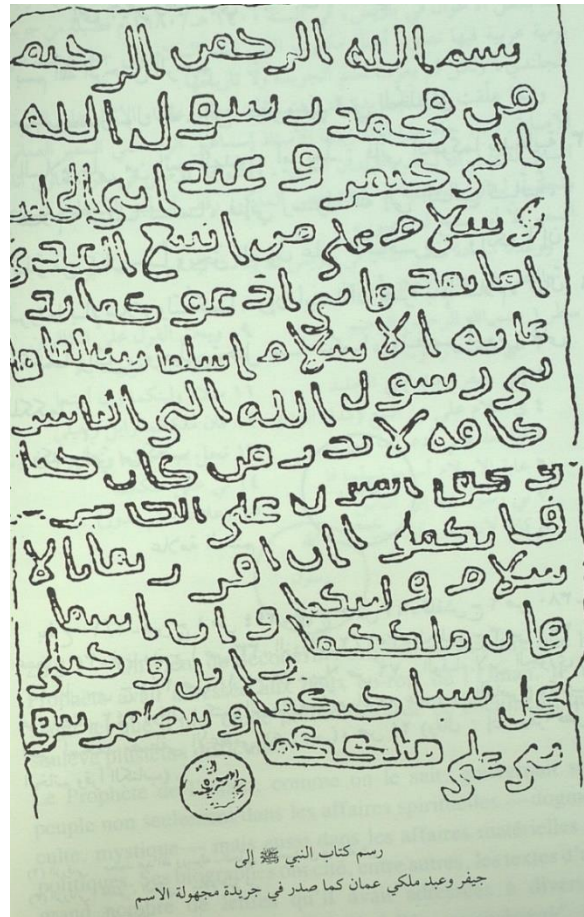 بسم الله الرحمن الرحيم
من محمد رسول الله
الى جيفر و عبد ابنى الجلند
و سلام على من اتبع الهدى
اما بعد فانى ادعوكما بد
عايه الاسلام اسلما تسلما فا
نى رسول الله الى الناس
كافه لانذر من كان حيا
و يحق القول على الكافرين
فانكما ان اقررتما بالا
سلام وليتكما و ان ابيتما
فان ملككما زايل و خيلى
تحل بساحتكما و تظهر نبو
تى على ملككما
رسم كتاب النبي ﷺ إلى
جيفر وعبد ملكي عمان كما صدر في جريدة مجهولة الاسم